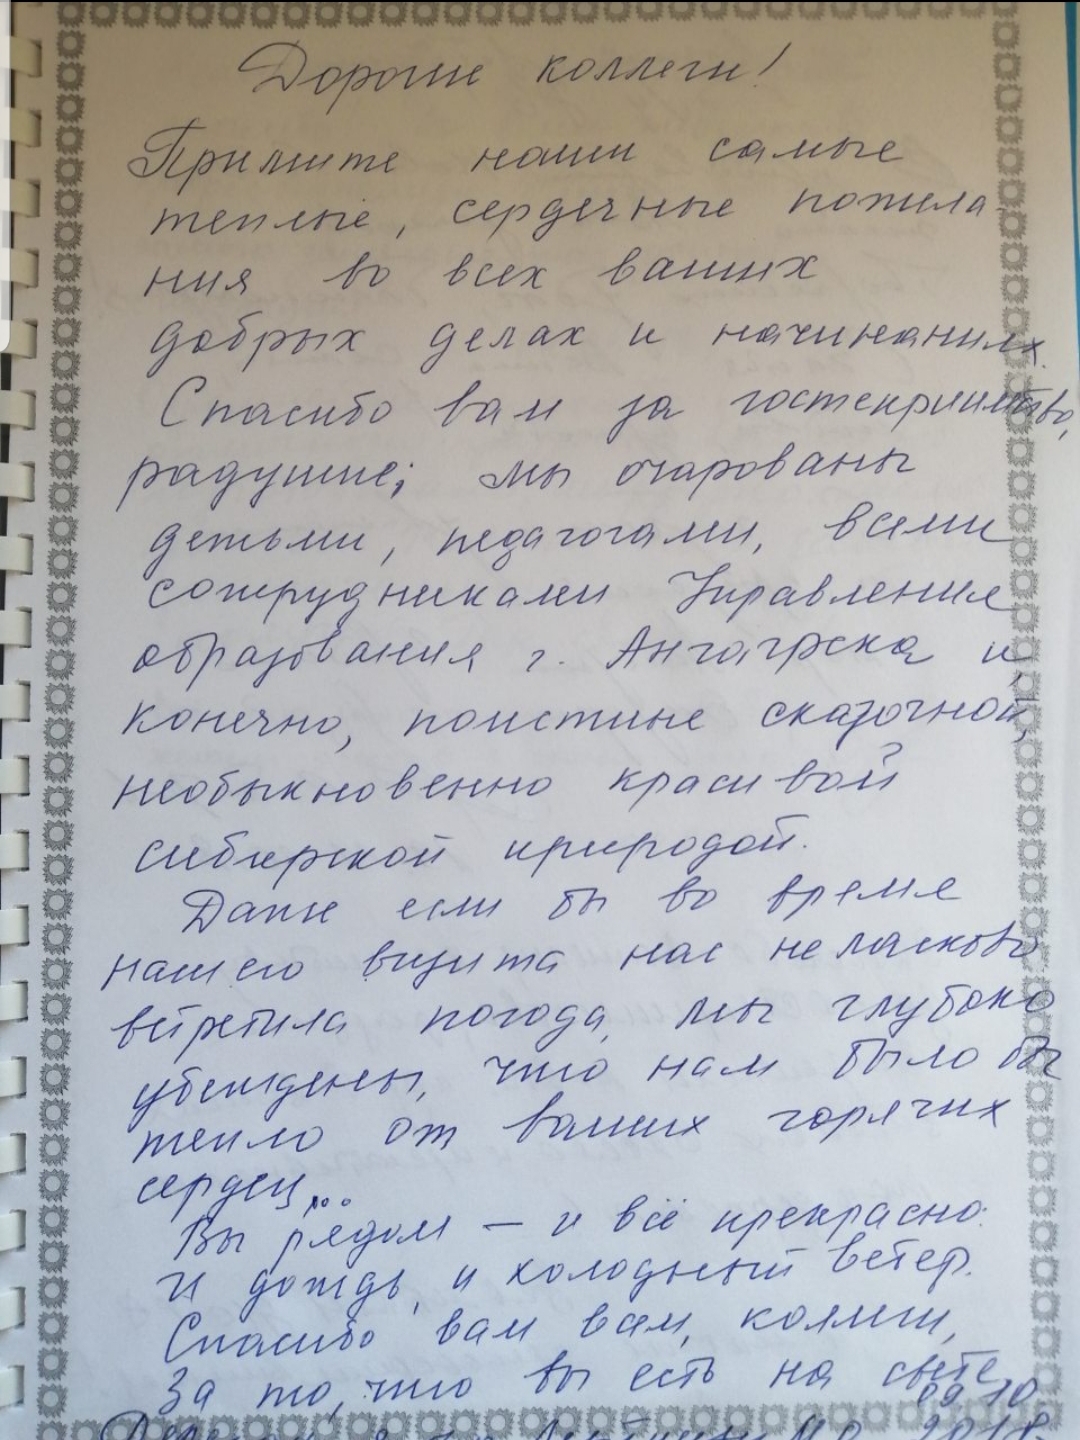 Дорогие коллеги!
Примите наши самые
теплые, сердечные пожела
ния во всех ваших
добрых делах и начинаниях.
Спасибо вам за гостеприимство,
радушие; мы очарованы
детьми, педагогами, всеми
сотрудниками Управления
образования г. Ангарска и,
конечно, поистине сказочной,
необыкновенно красивой
сибирской природой.
Даже если бы во время
нашего визита нас неласково
встретила погода, мы глубоко
убеждены, что нам было бы
тепло от ваших горячих
сердец...
Вы рядом – и всё прекрасно:
И дождь, и холодный ветер.
Спасибо вам вам, коллеги,
За то, что вы есть на свете
09.10
2018